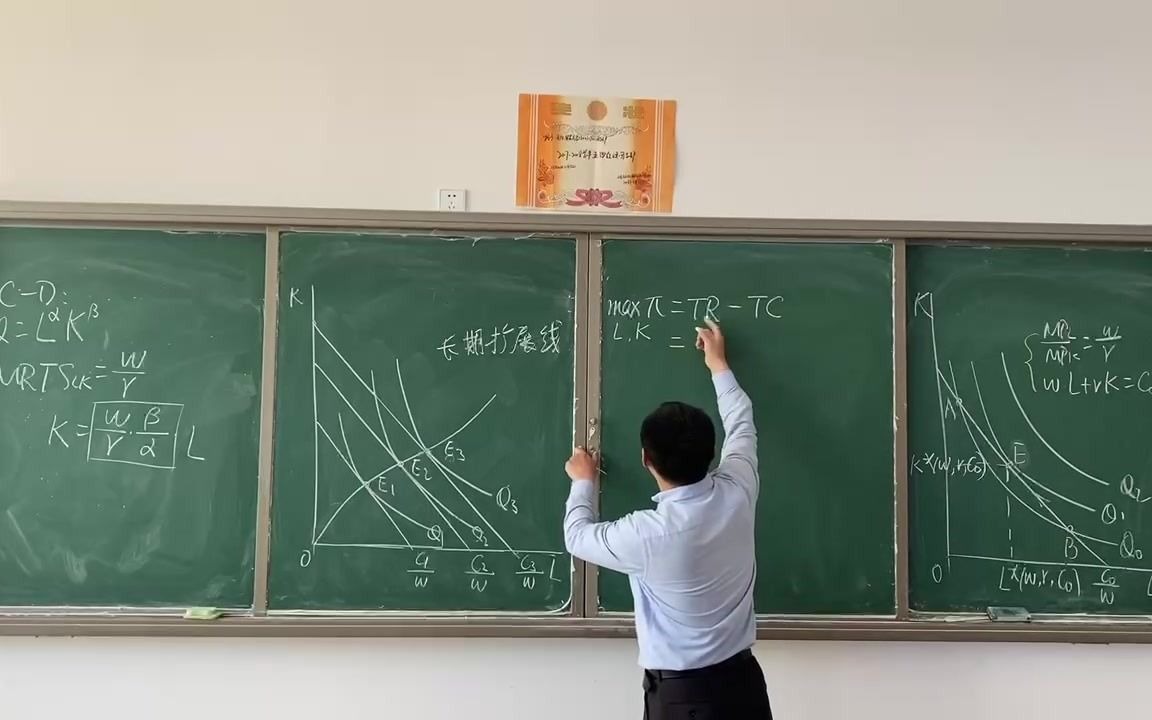 C-D:
Q=L^αK^β
MRTS_LK=w/r
K=w/r·β/α L
K
长期扩展线
E3
E2
E1
Q3
Q2
Q1
O
C1/w
C2/w
C3/w
L
max π=TR-TC
L.K
=
K
MPL/MPK=w/r
wL+rK=C0
A
K*(w,r,C0)
E
Q2
Q1
Q0
B
O
L*(w,r,C0)
C0/w
L